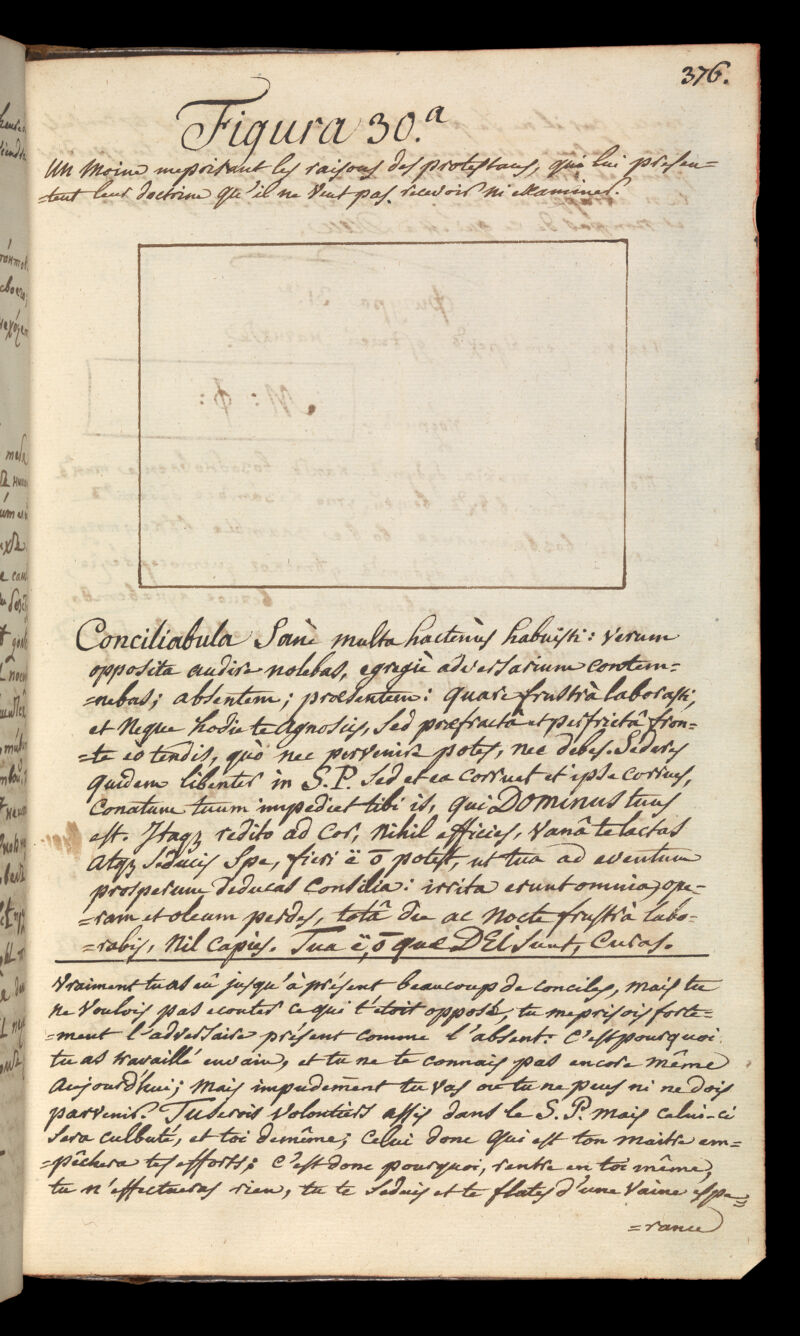 376.
Figura 30.ª
Un Moine meprisant les raisons des protestans, qui lui presen=
=tent leur doctrine qu'il ne veut pas recevoir ni examiner.
Conciliabula Sanè multa hactenùs habuisti: verum
opposita audire nolebas, egregiè adversarium contem=
=nebas; absentem; præsentem: quare frustrà laborasti,
et Neque hodie te Agnoscis, Sed præfractâ et perfrictâ fron=
=te eò tendis, quò nec pervenire potes, nec debes. Sederes
quidem libenter in S.P. Sed et ea corruet et ipse corrues,
Conatum tuum impediet tibi is, qui DOMINUS tuus
est. Itaqꝫ redito ad Cor, Nihil efficies, Vanâ te lactas
Atqꝫ Seducis Spe, fieri ē ō potest, ut tua ad eventum
prosperum deducas Consilia: irrita erunt omnia, ope=
=ram et oleum perdes, totâ die ac Nocte frustrà labo=
=rabis, Nil Capies. Tua ē, ō quæ DEI Sunt, Curas.
Vraiment tu as eû jusqu'à présent beaucoup de conciles, mais tu
ne voulois pas ecouter ce qui t'étoit opposé, tu meprisois forte=
=ment l'adversaire présent comme l'absent. C'est pourquoi
tu as travaillé envain, et tu ne te connais pas encore même
Aujourd'hui; Mais impudement tu vas où tu ne peus ni ne dois
parvenir. Tu serois volontiers assis dans le S.P. mais celui-ci
sera culbuté, et toi demême; Celui donc qui est ton maitre em=
=pêchera tes efforts; C'est donc pourquoi, rentre en toi même,
tu n'effectueras rien, tu te seduis et te flates d'une vaine espe=
=rance